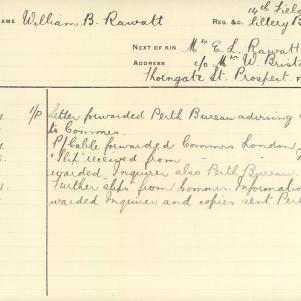 NAME William B. Rawatt REG. &C. 14th Fiel
tillery B
NEXT OF KIN Mrs E. L. Rawatt
ADDRESS c/o Mrs W. Brist
Thorngate St. Prospect
1/p Letter forwarded Perth Bureau advising
to Commrs.
P/Cable forwarded Commrs London
"Slip" received from
warded Inquirer also Perth Bureau.
Further slips from Commrs. Information
warded Inquirer and copies sent Perth